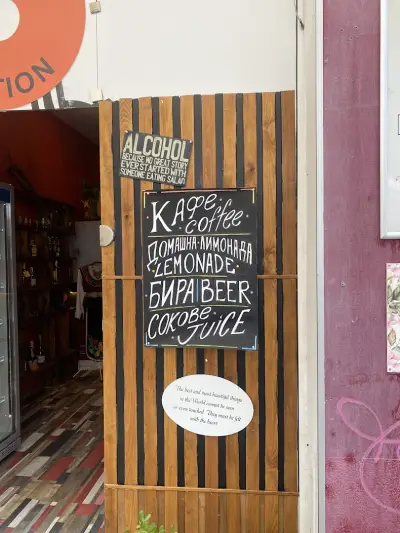 TION
ALCOHOL
BECAUSE NO GREAT STORY
EVER STARTED WITH
SOMEONE EATING SALAD
Кафе
coffee
ДОМАШНА ЛИМОНАДА
LEMONADE
БИРА BEER
СОКОВЕ
JUICE
The best and most beautiful things
in the World cannot be seen
or even touched. They must be felt
with the heart.